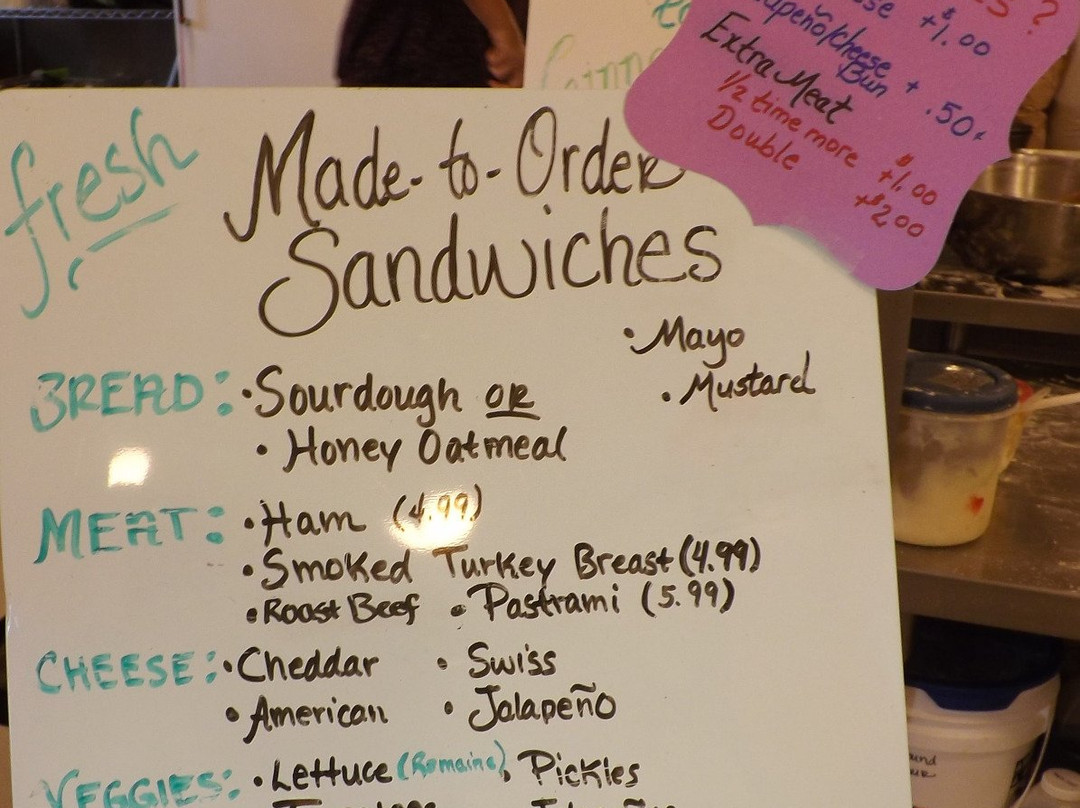 fresh
Made-to-Order
Sandwiches
• Mayo
• Mustard
BREAD: • Sourdough or
• Honey Oatmeal
MEAT: • Ham (4.99)
• Smoked Turkey Breast (4.99)
• Roast Beef • Pastrami (5.99)
CHEESE: • Cheddar • Swiss
• American • Jalapeño
VEGGIES: • Lettuce (Romaine) • Pickles
?
+$1.00
Bun + .50¢
Extra Meat
1/2 time more +$1.00
Double +$2.00